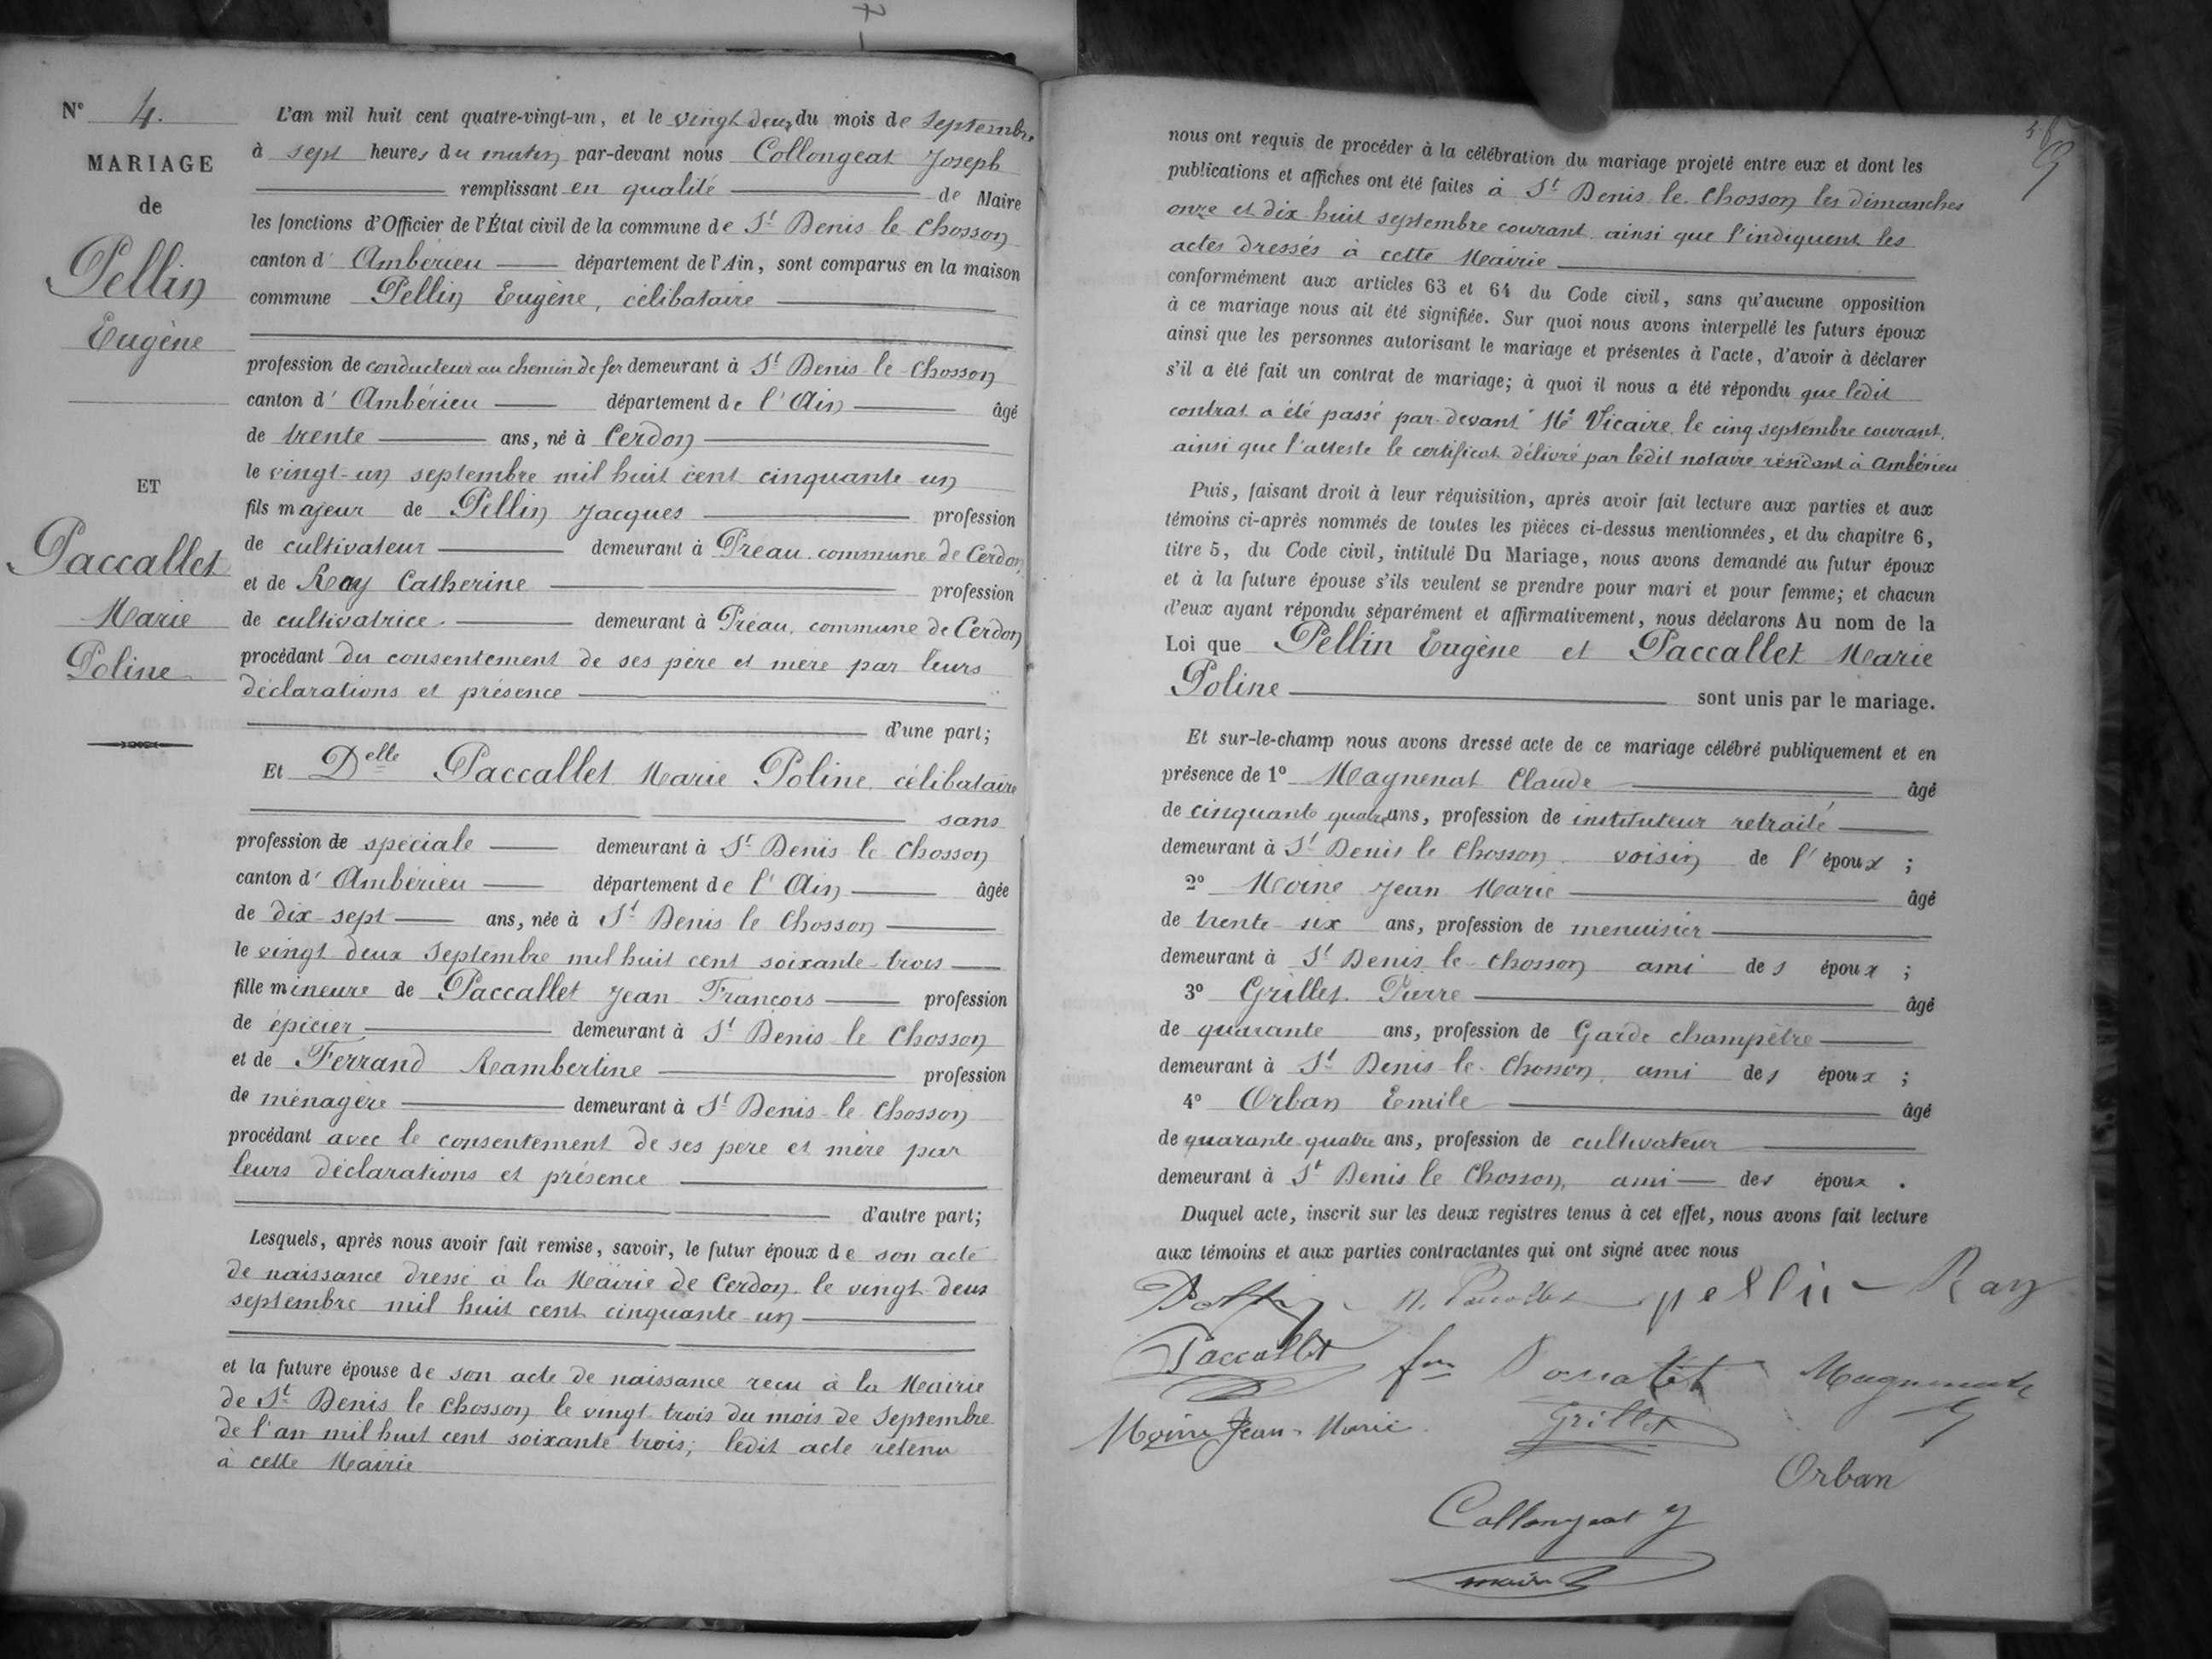 N° 4.
MARIAGE
de
Pellin
Eugène
ET
Paccallet
Marie
Poline
L'an mil huit cent quatre-vingt-un, et le vingt deux du mois de Septembre
à sept heures du matin par-devant nous Collongeat Joseph
remplissant en qualité de Maire
les fonctions d'Officier de l'État civil de la commune de St Denis le Chosson
canton d' Ambérieu département de l'Ain, sont comparus en la maison
commune Pellin Eugène, célibataire
profession de conducteur au chemin de fer demeurant à St Denis le Chosson
canton d' Ambérieu département de l'Ain âgé
de trente ans, né à Cerdon
le vingt-un septembre mil huit cent cinquante un
fils majeur de Pellin Jacques profession
de cultivateur demeurant à Préau commune de Cerdon
et de Ray Catherine profession
de cultivatrice demeurant à Préau, commune de Cerdon
procédant du consentement de ses père et mère par leurs
déclarations et présence
d'une part;
Et Delle Paccallet Marie Poline, célibataire
sans
profession de spéciale demeurant à St Denis le Chosson
canton d' Ambérieu département de l'Ain âgée
de dix-sept ans, née à St Denis le Chosson
le vingt deux Septembre mil huit cent soixante-trois
fille mineure de Paccallet Jean François profession
de épicier demeurant à St Denis le Chosson
et de Ferrand Rambertine profession
de ménagère demeurant à St Denis le Chosson
procédant avec le consentement de ses père et mère par
leurs déclarations et présence
d'autre part;
Lesquels, après nous avoir fait remise, savoir, le futur époux de son acte
de naissance dressé à la Mairie de Cerdon le vingt deux
septembre mil huit cent cinquante-un
et la future épouse de son acte de naissance reçu à la Mairie
de St Denis le Chosson le vingt trois du mois de Septembre
de l'an mil huit cent soixante trois; ledit acte retenu
à cette Mairie
nous ont requis de procéder à la célébration du mariage projeté entre eux et dont les
publications et affiches ont été faites à St Denis le Chosson les dimanches
onze et dix huit septembre courant ainsi que l'indiquent les
actes dressés à cette Mairie
conformément aux articles 63 et 64 du Code civil, sans qu'aucune opposition
à ce mariage nous ait été signifiée. Sur quoi nous avons interpellé les futurs époux
ainsi que les personnes autorisant le mariage et présentes à l'acte, d'avoir à déclarer
s'il a été fait un contrat de mariage; à quoi il nous a été répondu que ledit
contrat a été passé par-devant Me Vicaire le cinq septembre courant.
ainsi que l'atteste le certificat délivré par ledit notaire résidant à Ambérieu
Puis, faisant droit à leur réquisition, après avoir fait lecture aux parties et aux
témoins ci-après nommés de toutes les pièces ci-dessus mentionnées, et du chapitre 6,
titre 5, du Code civil, intitulé Du Mariage, nous avons demandé au futur époux
et à la future épouse s'ils veulent se prendre pour mari et pour femme; et chacun
d'eux ayant répondu séparément et affirmativement, nous déclarons Au nom de la
Loi que Pellin Eugène et Paccallet Marie
Poline sont unis par le mariage.
Et sur-le-champ nous avons dressé acte de ce mariage célébré publiquement et en
présence de 1° Magnenat Claude âgé
de cinquante quatre ans, profession de instituteur retraité
demeurant à St Denis le Chosson voisin de l'époux ;
2° Moine Jean Marie âgé
de trente-six ans, profession de menuisier
demeurant à St Denis le Chosson ami des époux ;
3° Grillet Pierre âgé
de quarante ans, profession de Garde champêtre
demeurant à St Denis le Chosson, ami des époux ;
4° Orban Emile âgé
de quarante-quatre ans, profession de cultivateur
demeurant à St Denis le Chosson, ami des époux .
Duquel acte, inscrit sur les deux registres tenus à cet effet, nous avons fait lecture
aux témoins et aux parties contractantes qui ont signé avec nous
pellin Ray
Paccallet Magnenat
Moine Jean-Marie Grillet
Orban
Collongeat J
maire